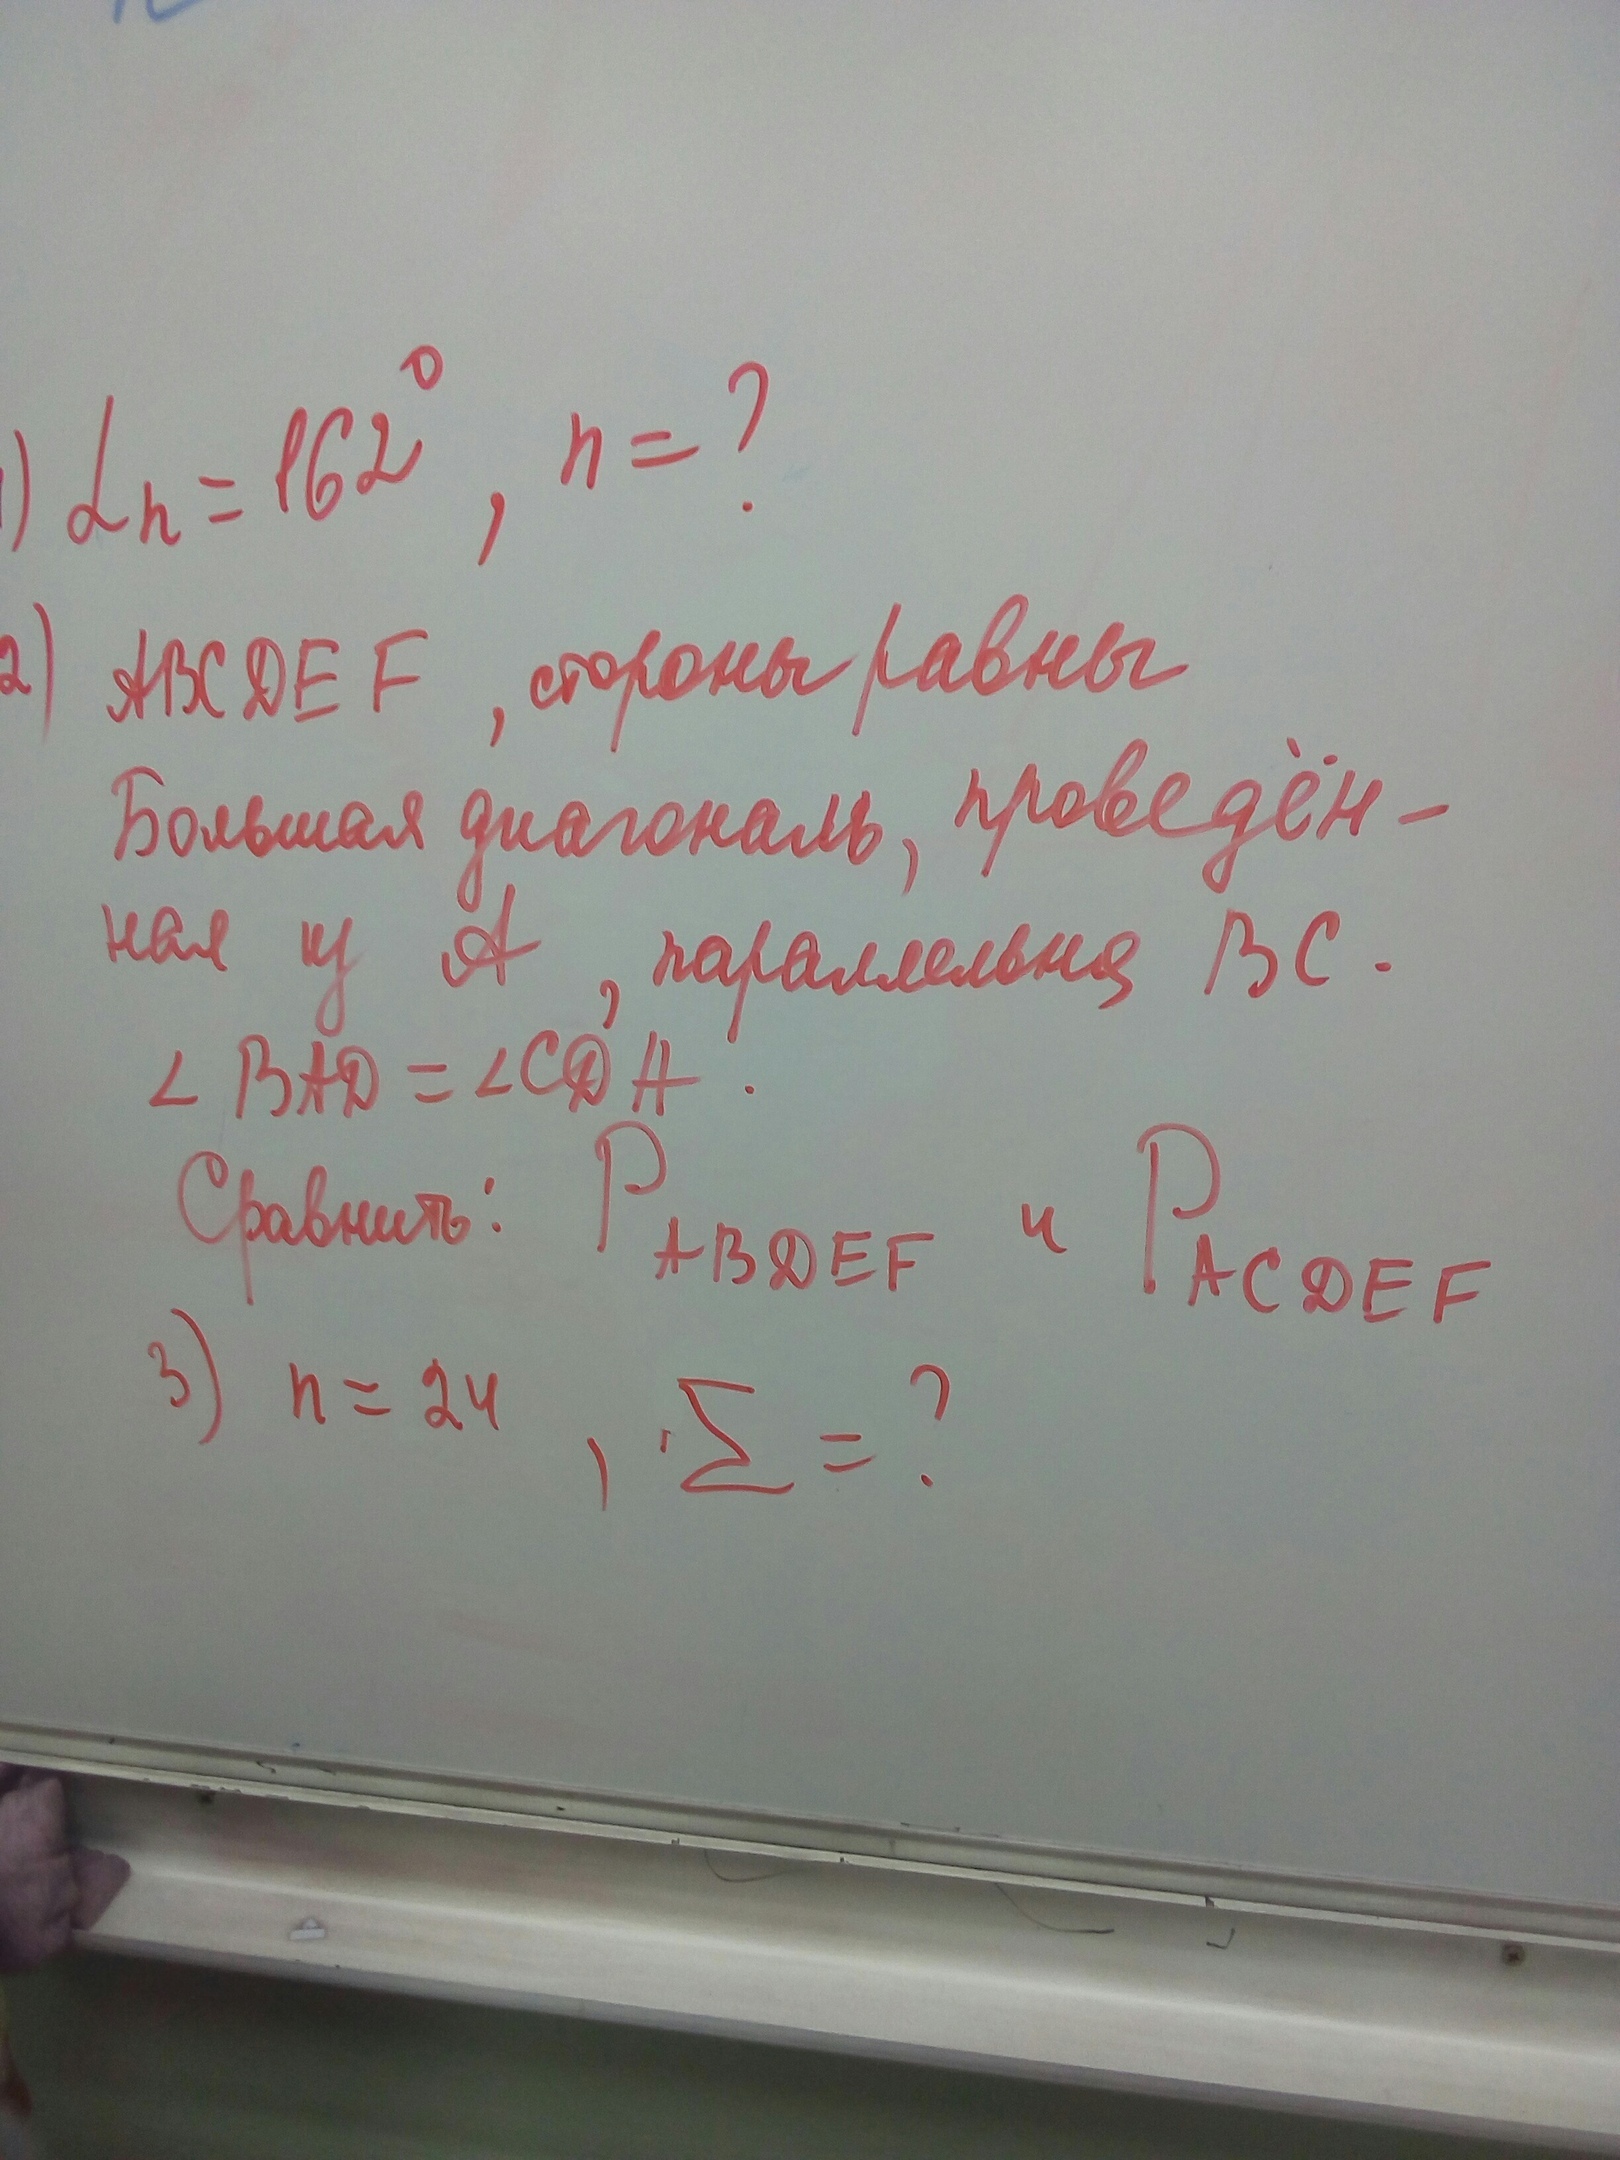 1) αn = 162°, n = ?
2) ABCDEF, стороны равны
Большая диагональ, проведён-
ная из A, параллельна BC.
∠BAD = ∠CDA.
Сравнить: P ABDEF и P ACDEF
3) n = 24, Σ = ?